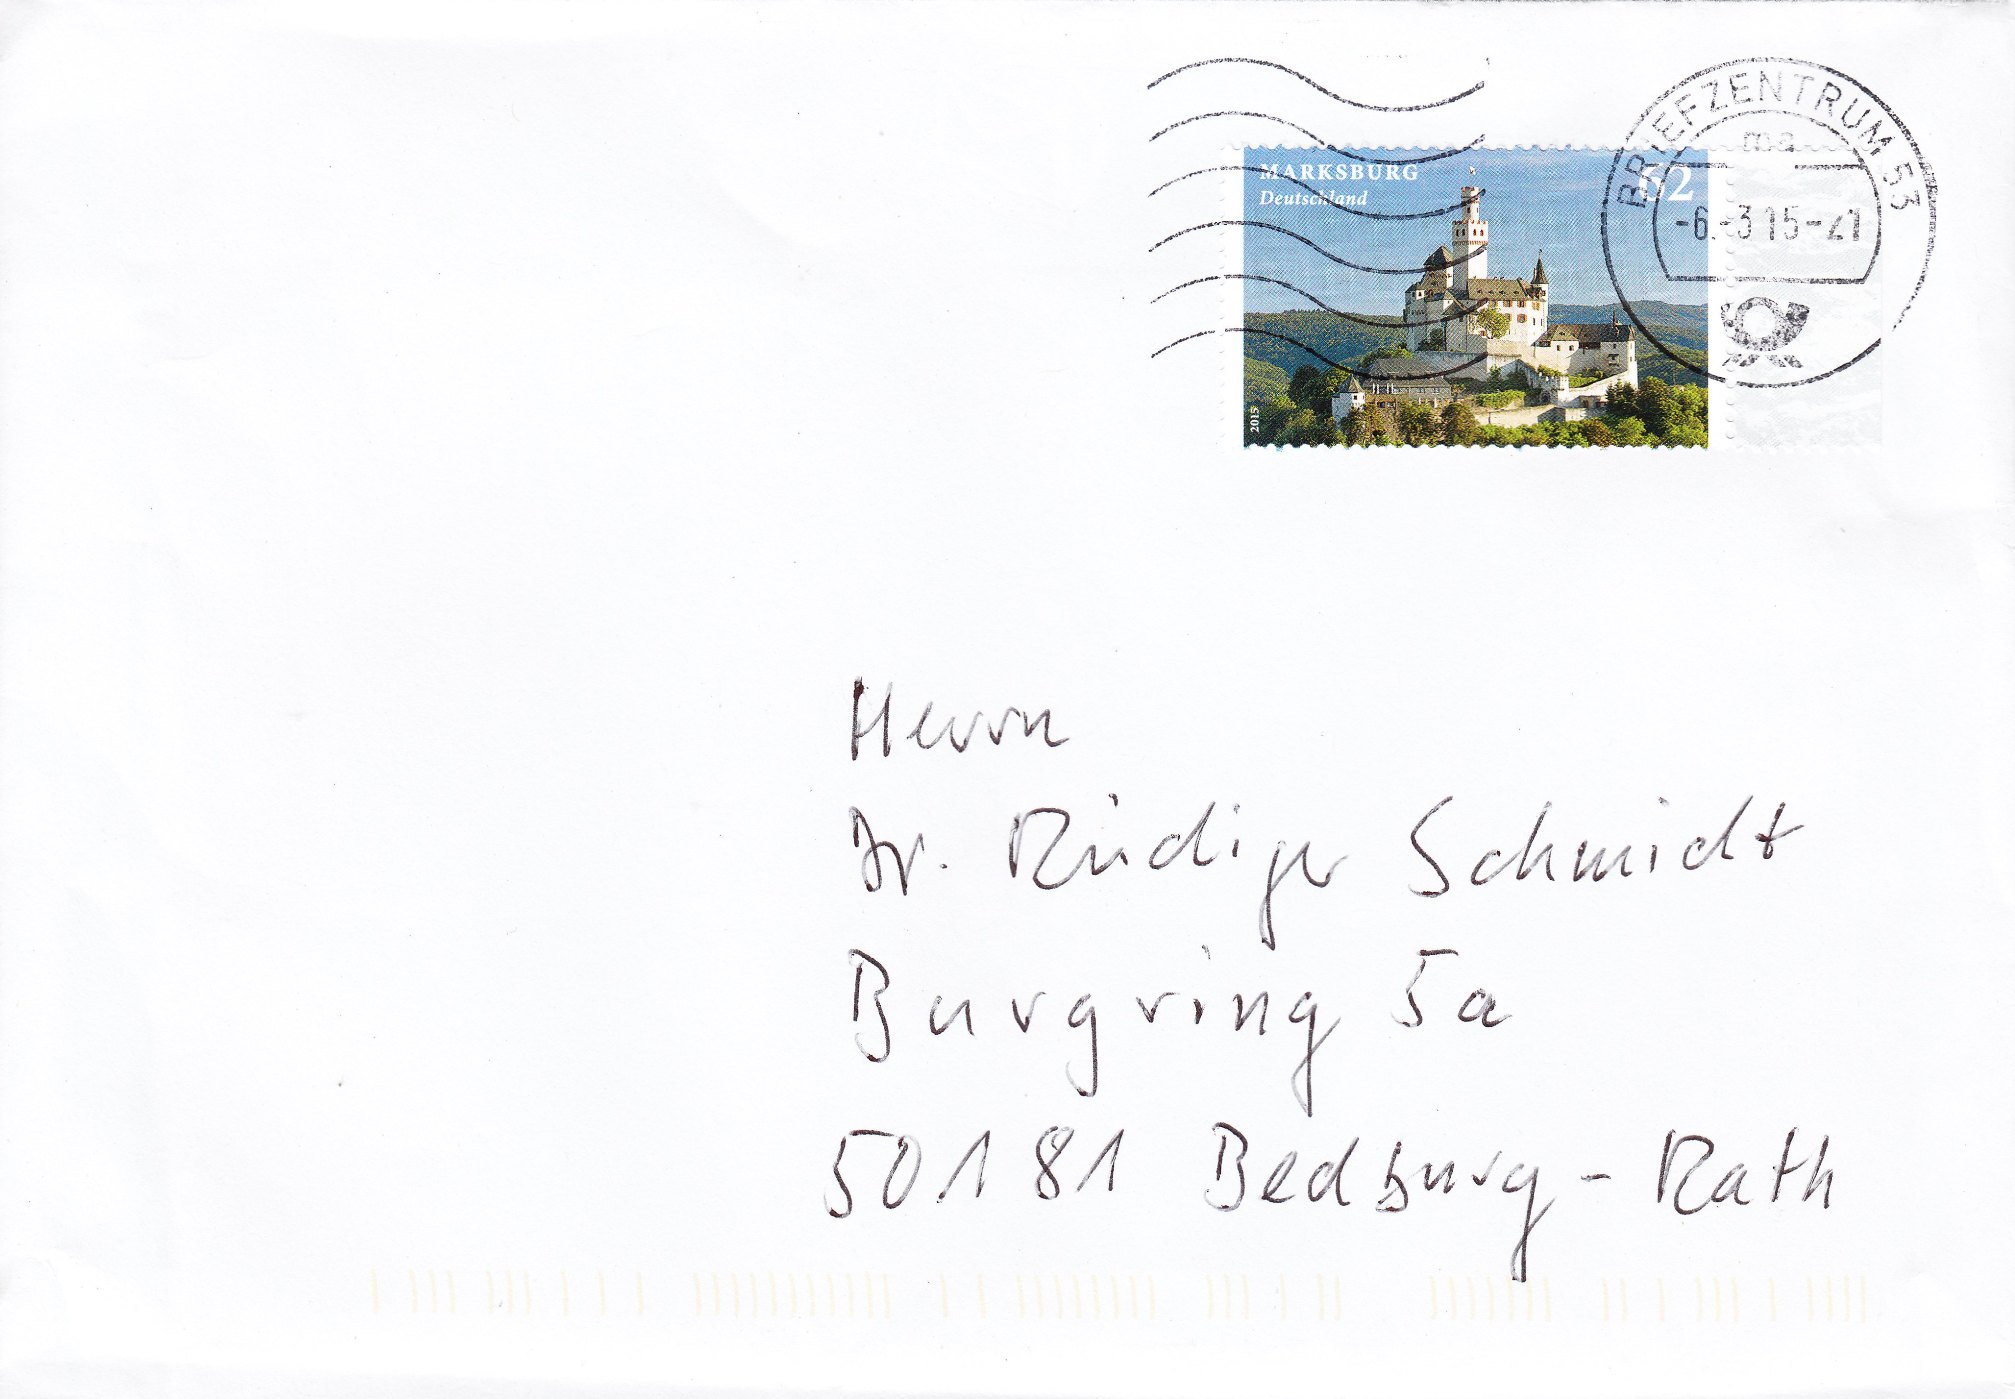 BRIEFZENTRUM 53
ma
MARKSBURG
62
Deutschland
-6.-3 15-21
2015
Herrn
Dr. Rüdiger Schmidt
Burgring 5a
50181 Bedburg-Rath